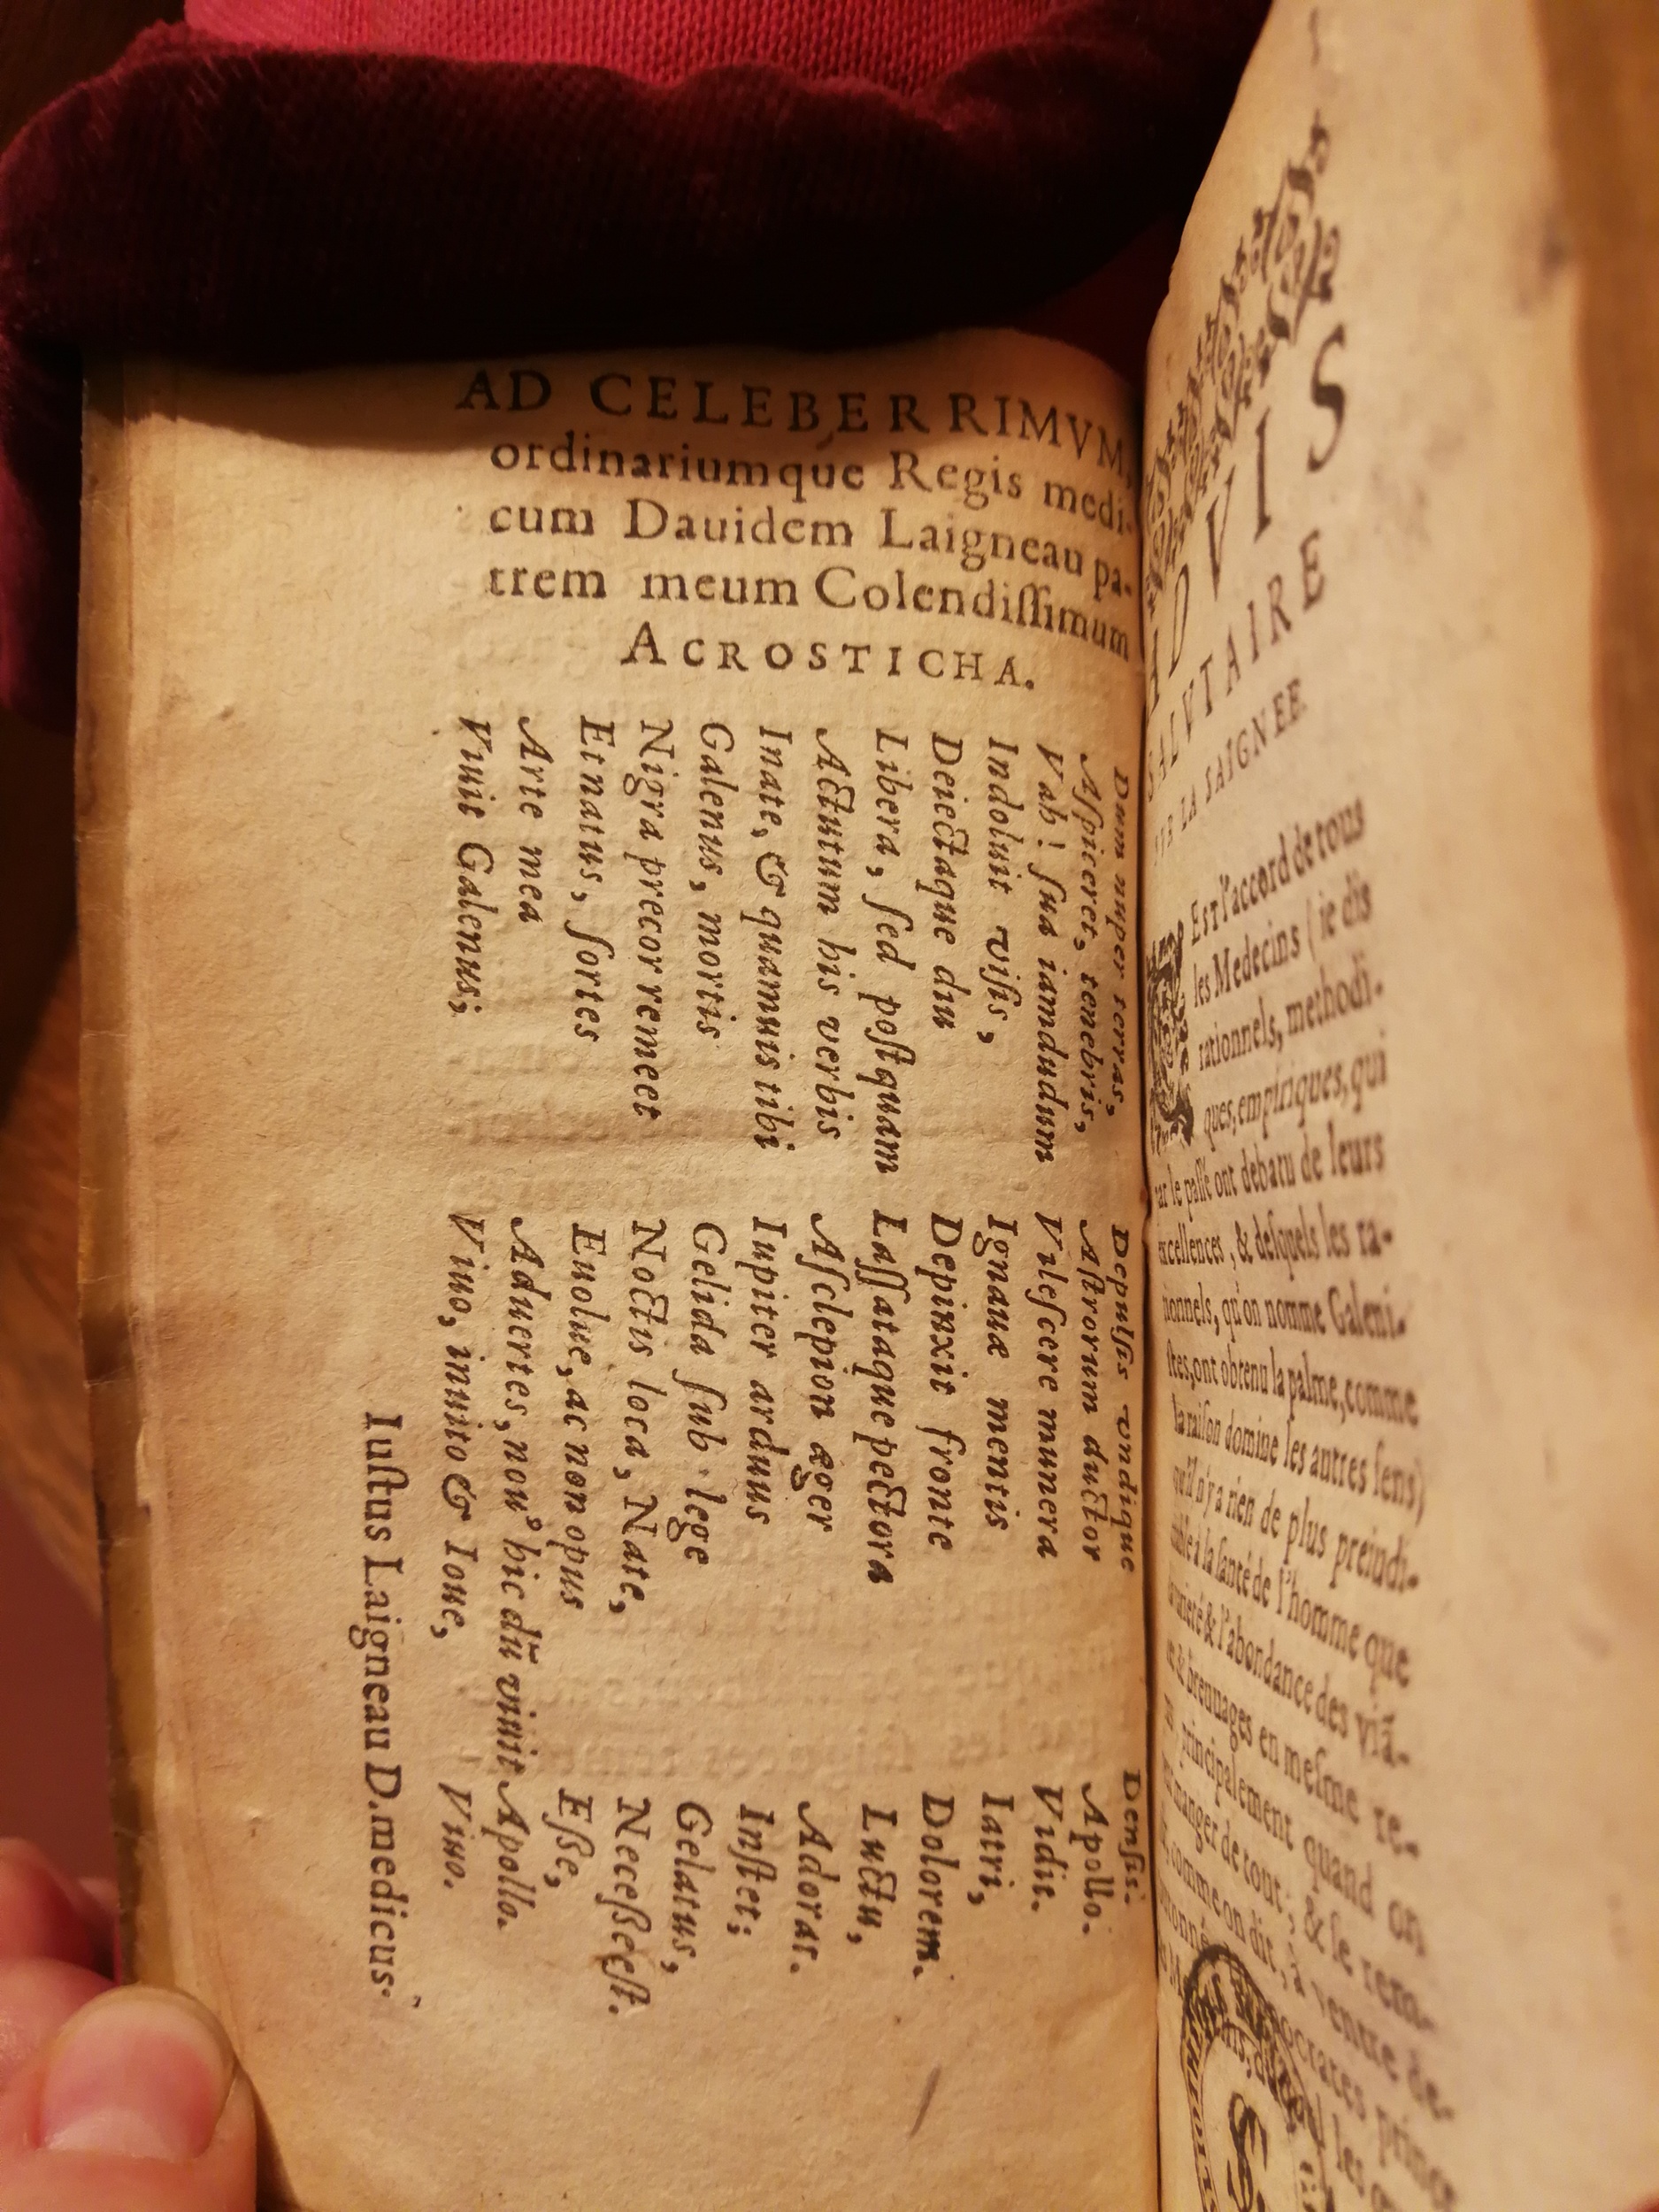 AD CELEBERRIMVM,
ordinariumque Regis medi-
cum Dauidem Laigneau pa-
trem meum Colendiſſimum
ACROSTICHA.
Dum nuper terras, Depulſis vndique Denſis.
Aſpiceret, tenebris, Aſtrorum ductor Apollo.
Vah! ſua iamdudum Vileſcere munera Vidit.
Indoluit viſis, Ignauæ mentis Iatri,
Deiectaque diu Depinxit fronte Dolorem.
Libera, ſed poſtquam Laſſataque pectora Luctu,
Actutum his verbis Aſclepion æger Adoras.
Inate, & quamuis tibi Iupiter arduus Inſtet;
Galenus, mortis Gelida ſub lege Gelatus,
Nigra precor remeet Noctis loca, Nate, Neceſſeeſt.
Etnatus, ſortes Euolue, ac non opus Eſſe,
Arte mea Aduertes, nouº hic dũ viuit Apollo.
Viuit Galenus; Viuo, inuito & Ioue, Viuo.
Iuſtus Laigneau D. medicus.
DVIS
SALVTAIRE
LA SAIGNEE
Eſt l'accord de tous
les Medecins (ie dis
rationnels, methodi-
ques, empiriques, qui
par le paſſé ont debatu de leurs
excellences, & deſquels les ra-
tionnels, qu'on nomme Galeni-
ſtes, ont obtenu la palme, comme
la raiſon domine les autres ſens)
qu'il n'y a rien de plus preiudi-
à la ſanté de l'homme que
& l'abondance des viã-
& breuuages en meſme re-
principalement quand on
manger de tout, & ſe rem-
comme on dit, à ventre de-